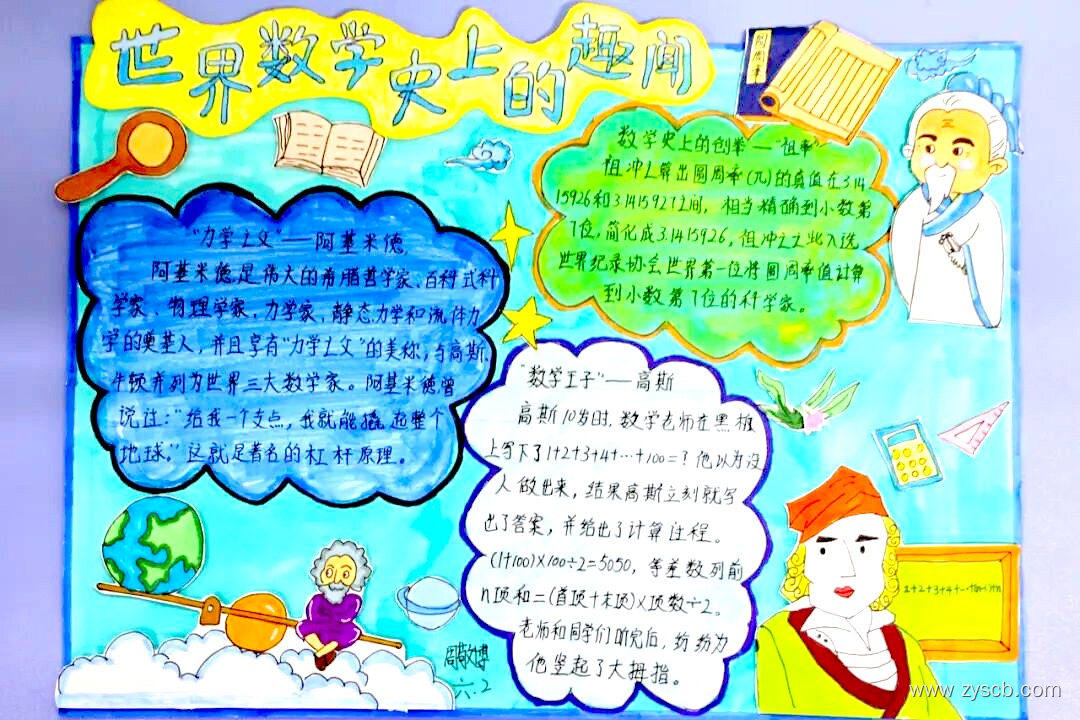 世界数学史上的趣闻
圆周率
"力学之父"——阿基米德
阿基米德是伟大的希腊哲学家、百科式科
学家、物理学家,力学家,静态力学和流体力
学的奠基人,并且享有"力学之父"的美称,与高斯、
牛顿并列为世界三大数学家。阿基米德曾
说过:"给我一个支点,我就能撬起整个
地球。"这就是著名的杠杆原理。
数学史上的创举——"祖率"
祖冲之算出圆周率(π)的真值在3.14
15926和3.1415927之间,相当精确到小数第
7位,简化成3.1415926,祖冲之之此入选
世界纪录协会世界第一位将圆周率值计算
到小数第7位的科学家。
"数学王子"——高斯
高斯10岁时,数学老师在黑板
上写下了1+2+3+4+…+100=?他以为没
人做出来,结果高斯立刻就写
出了答案,并给出了计算过程。
(1+100)×100÷2=5050,等差数列前
n项和=(首项+末项)×项数÷2。
老师和同学们听完后,纷纷为
他竖起了大拇指。
1+2+3+4+
六.2
www.zyscb.com